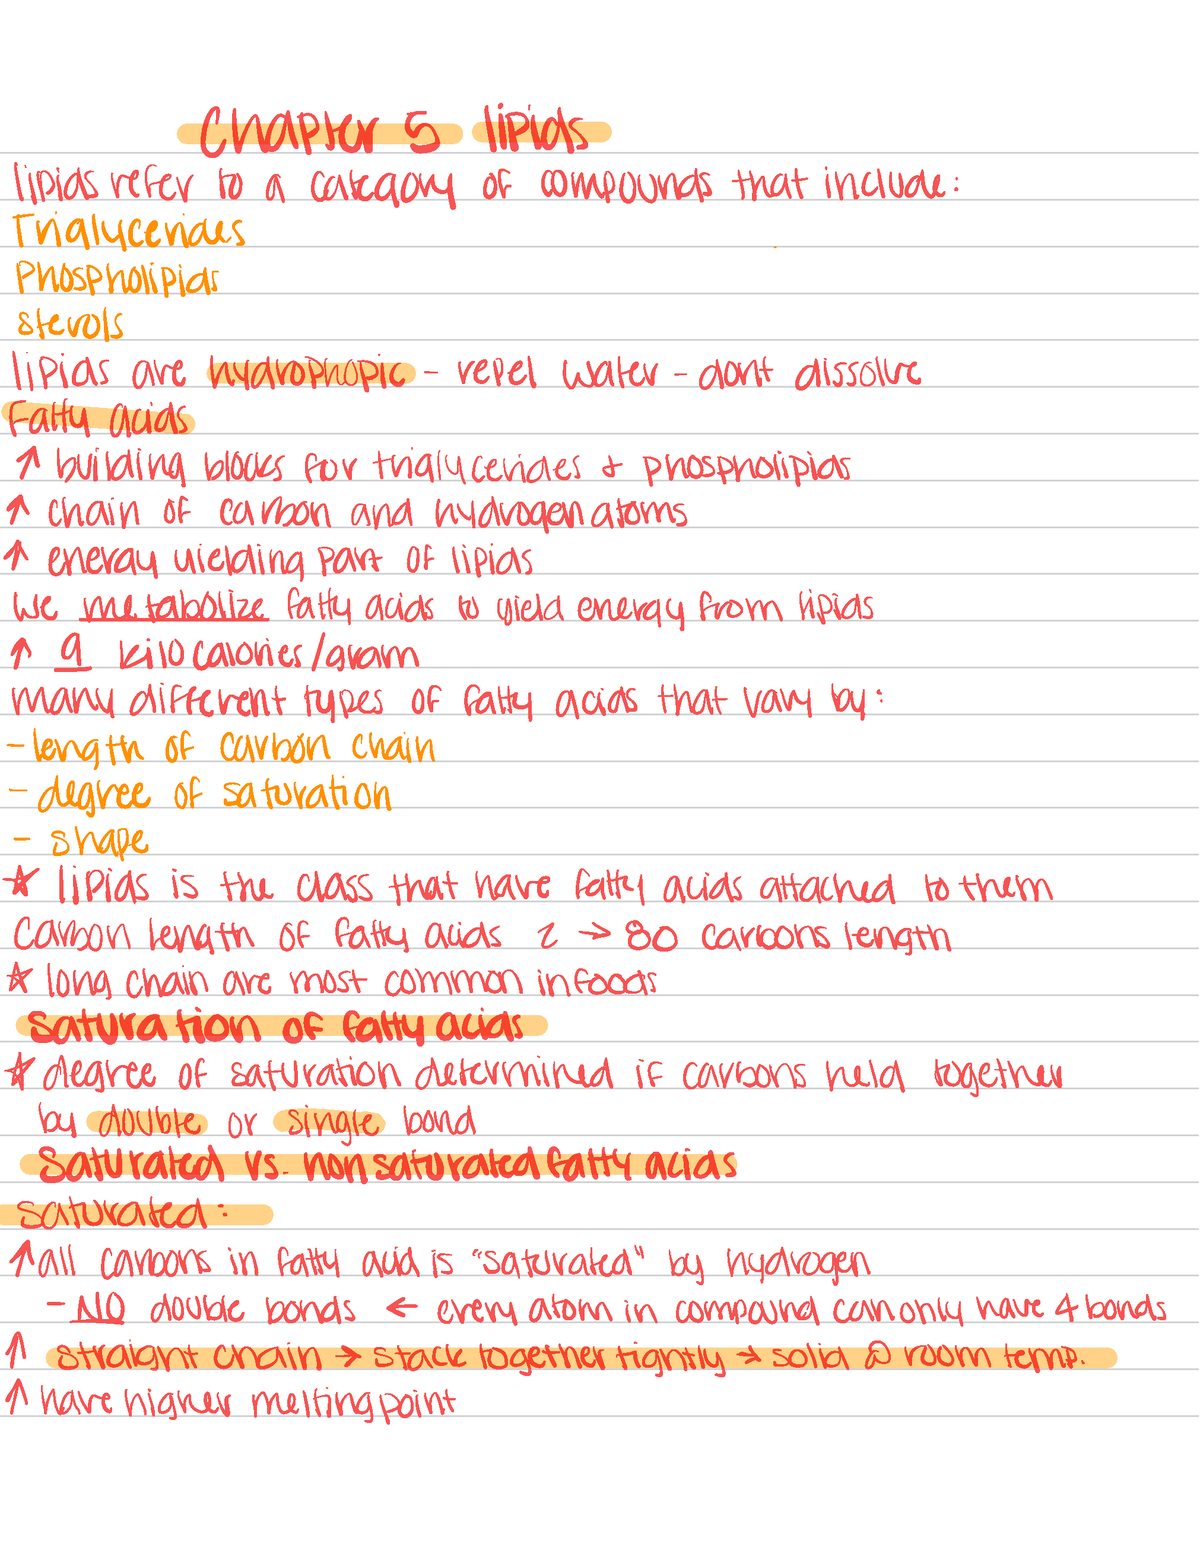 Chapter 5 lipids
lipids refer to a category of compounds that include:
Triglycerides
Phospholipids
sterols
lipids are hydrophopic - repel water - dont dissolve
Fatty acids
↑ building blocks for triglycerides + phospholipids
↑ chain of carbon and hydrogen atoms
↑ energy yielding part of lipids
we metabolize fatty acids to yield energy from lipids
↑ 9 kilocalories/gram
many different types of fatty acids that vary by:
- length of carbon chain
- degree of saturation
- shape
☆ lipids is the class that have fatty acids attached to them
Carbon length of fatty acids 2 → 80 carbons length
☆ long chain are most common in foods
Saturation of fatty acids
☆ degree of saturation determined if carbons held together
by double or single bond
Saturated vs. nonsaturated fatty acids
saturated:
↑ all carbons in fatty acid is "saturated" by hydrogen
- NO double bonds ← every atom in compound can only have 4 bonds
↑ straight chain → stack together tightly → solid @ room temp.
↑ have higher melting point